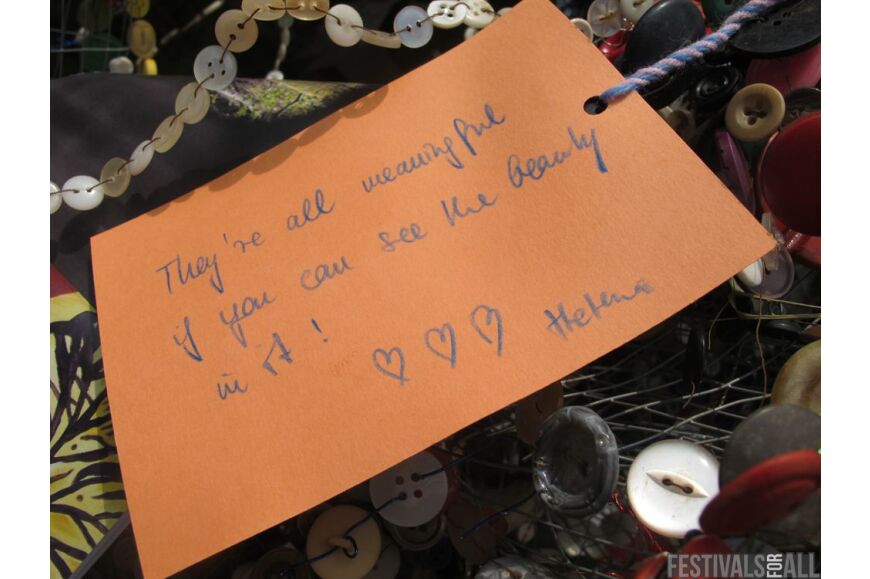 They're all meaningful
if you can see the beauty
in it! ♡♡♡ Helena
FESTIVALS FOR ALL